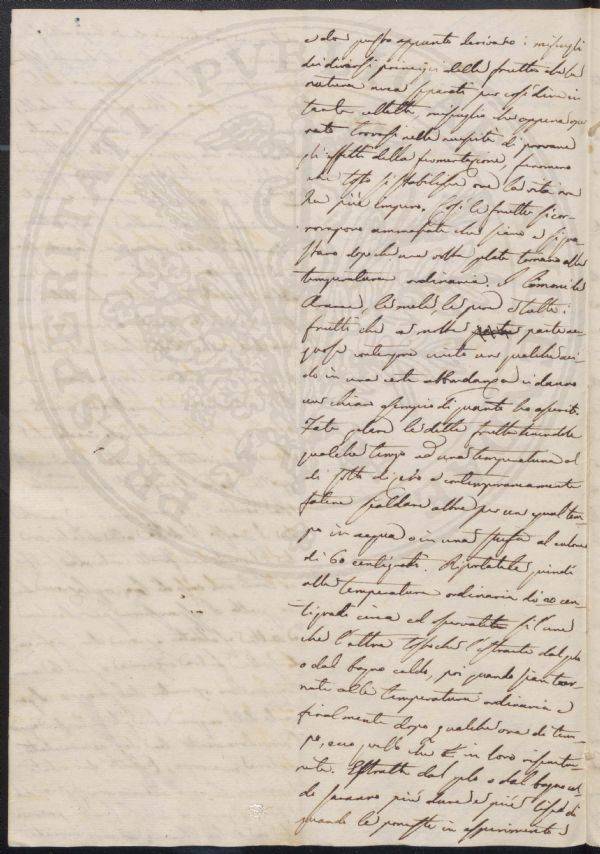 e da questo appunto derivano i miscugli
dei diversi principj delle frutta che la
natura avea separati per così dire in
tante cellette, miscuglio che appena ope-
rato trovasi nella necessità di provare
gli effetti della fermentazione, fenomeno
che tosto si stabilisce ove la vita non
ha più impero. Così le frutta si cor-
rompono ammaccate che siano e si gua-
stano dopo che una volta gelate tornano alla
temperatura ordinaria. I limoni le
Arance, le mele, le pere e tutti i
frutti che a molta parte ac-
quosa contengono unito un qualche aci-
do in una certa abbondanza ci danno
un chiaro esempio di quanto ho asserito.
Fate gelare le dette frutta tenendole
qualche tempo ad una temperatura al
di sotto di zero e contemporaneamente
fatene scaldare altre per un egual tem-
po in acqua o in una stufa al calore
di 60 centigradi. Riportatele quindi
alla temperatura ordinaria di 20 cen-
tigradi circa ed osservatele sì l'une
che l'altre tosto che l'estraete dal gelo
o dal bagno caldo, poi quando sian tor-
nate alla temperatura ordinaria e
finalmente dopo qualche ora di tem-
po, ecco quello che in loro rispette-
rete. Estratte dal gelo o dal bagno cal-
do saranno più dure e più lisce di
quando le poneste in esperimento e
PVB
PROSPERITATI